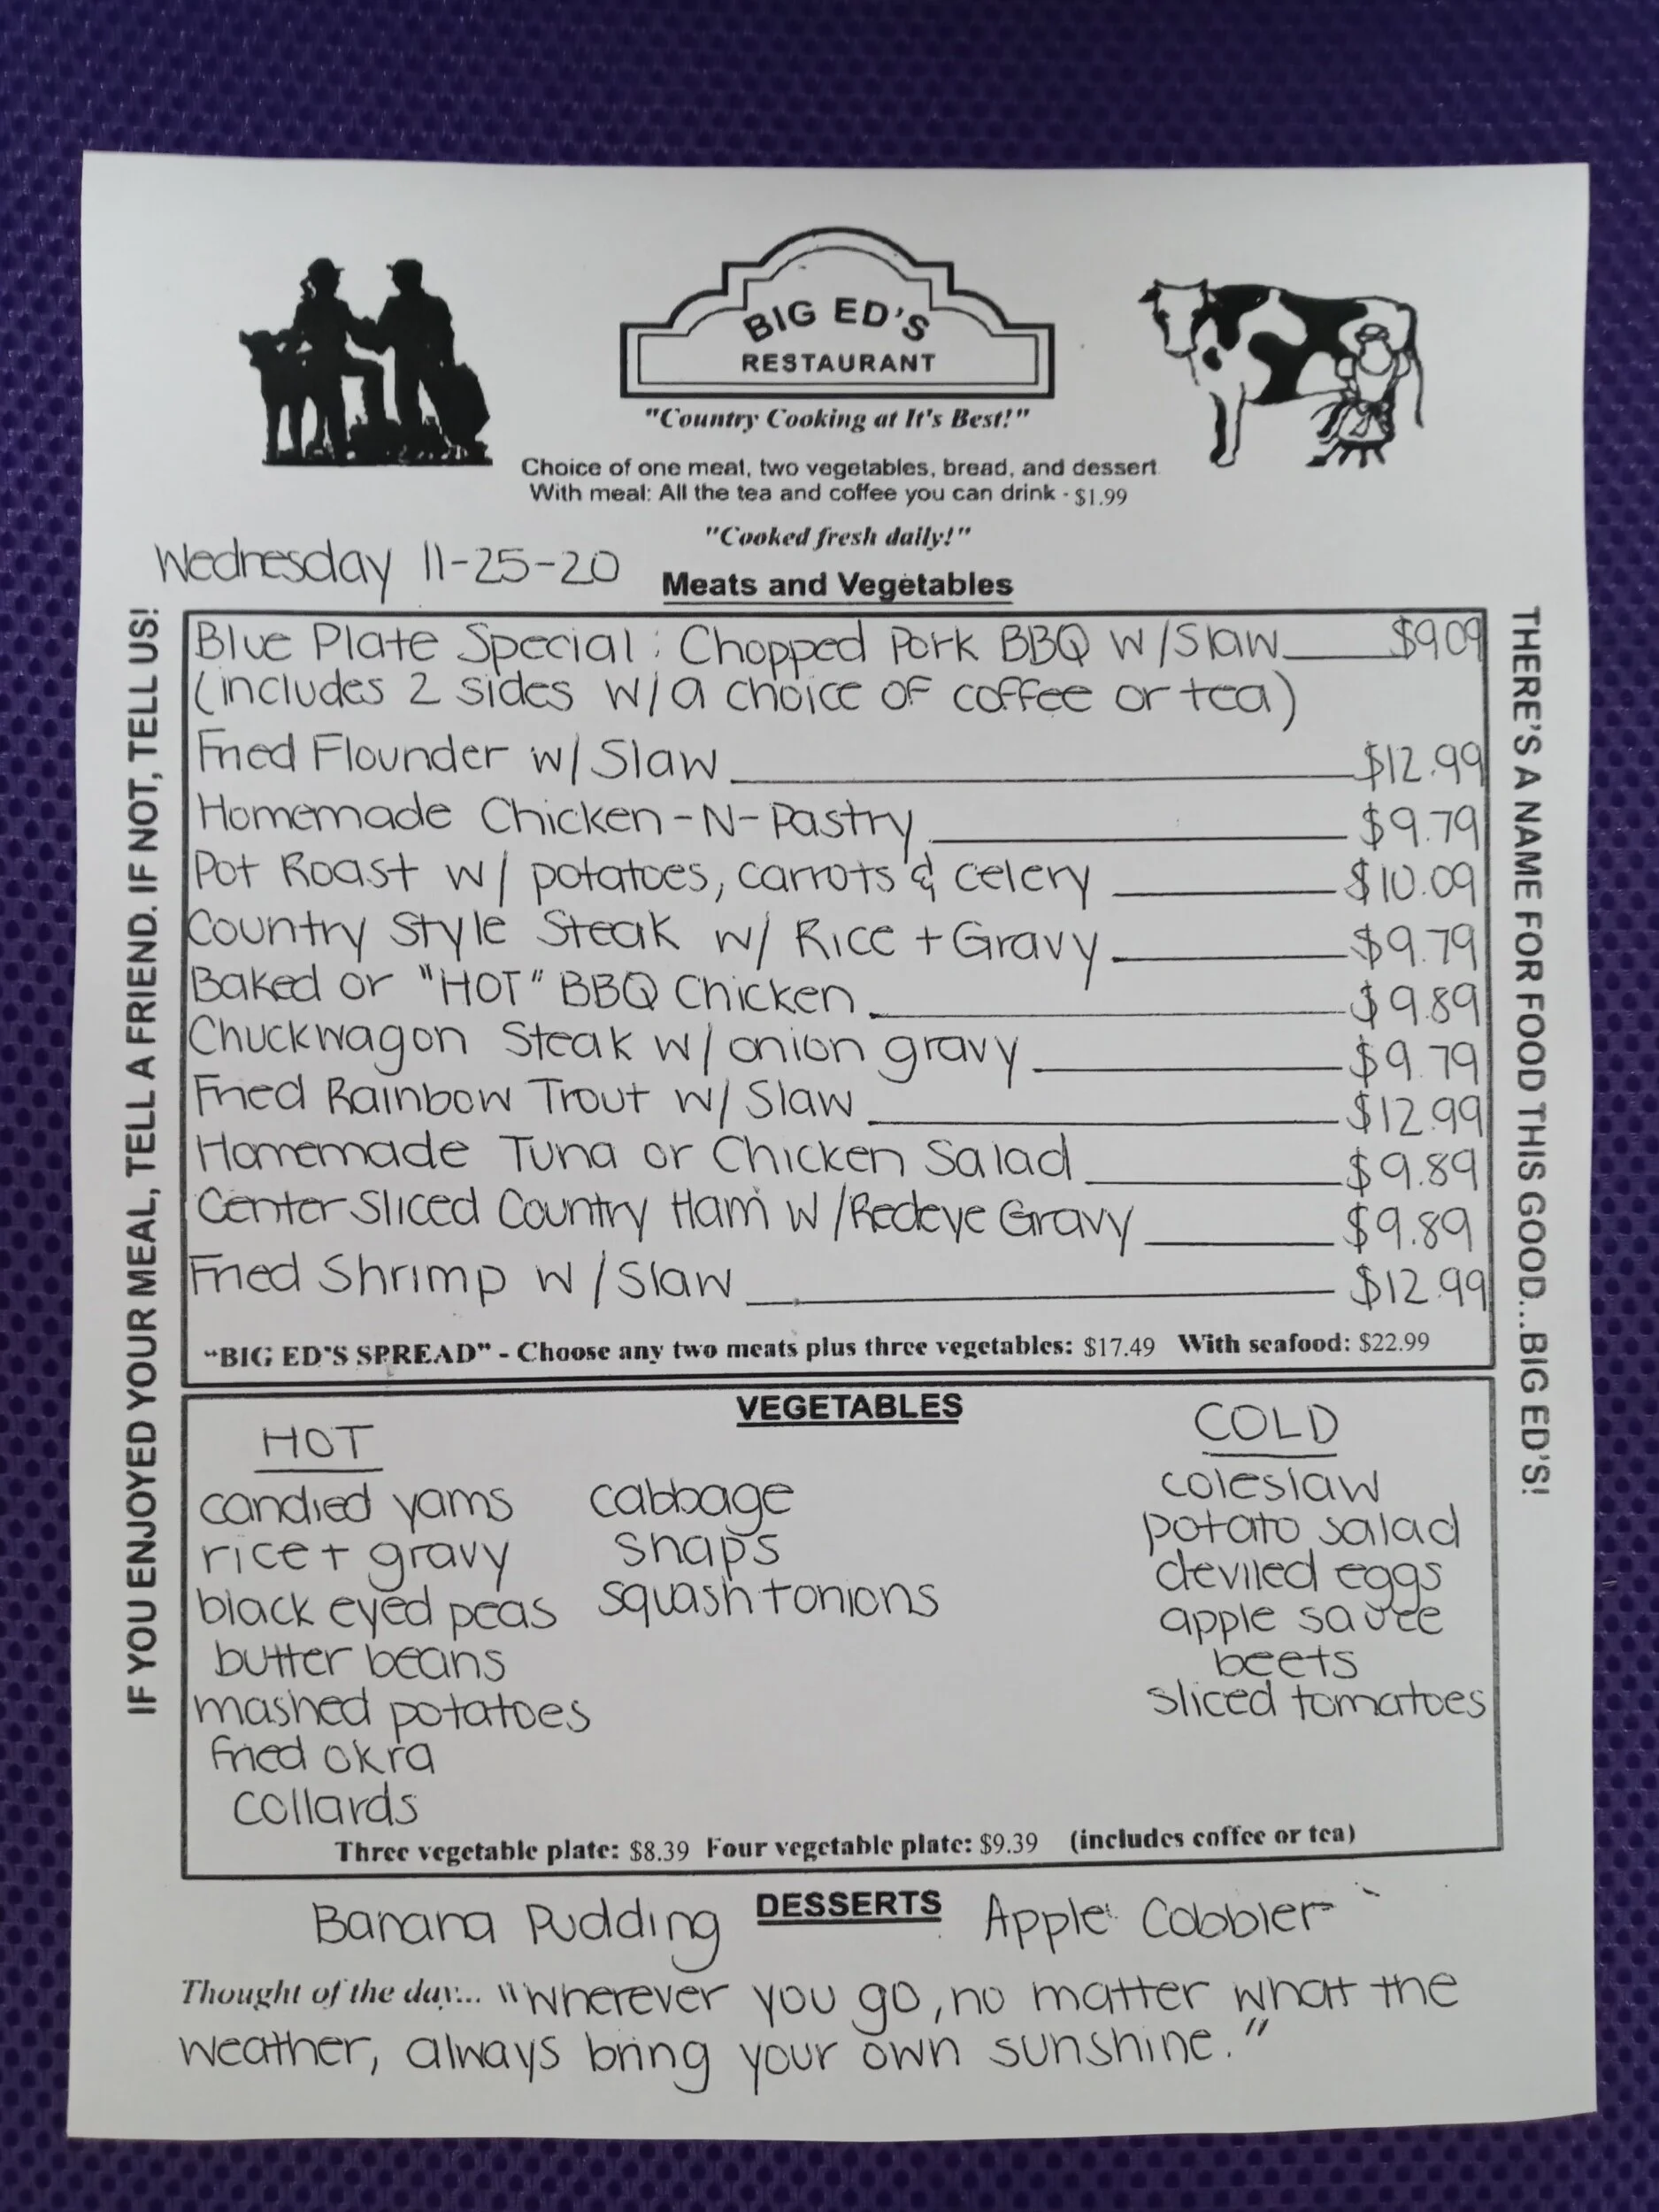 BIG ED'S
RESTAURANT
"Country Cooking at It's Best!"
Choice of one meat, two vegetables, bread, and dessert
With meal: All the tea and coffee you can drink - $1.99
"Cooked fresh daily!"
Wednesday 11-25-20
Meats and Vegetables
IF YOU ENJOYED YOUR MEAL, TELL A FRIEND. IF NOT, TELL US!
Blue Plate Special: Chopped Pork BBQ w/Slaw $9.09
(includes 2 sides w/a choice of coffee or tea)
Fried Flounder w/ Slaw $12.99
Homemade Chicken-N-Pastry $9.79
Pot Roast w/ potatoes, carrots & celery $10.09
Country Style Steak w/ Rice + Gravy $9.79
Baked or "HOT" BBQ Chicken $9.89
Chuckwagon Steak w/ onion gravy $9.79
Fried Rainbow Trout w/ Slaw $12.99
Homemade Tuna or Chicken Salad $9.89
Center Sliced Country Ham w/Redeye Gravy $9.89
Fried Shrimp w/Slaw $12.99
"BIG ED'S SPREAD" - Choose any two meats plus three vegetables: $17.49 With seafood: $22.99
THERE'S A NAME FOR FOOD THIS GOOD...BIG ED'S!
VEGETABLES
HOT
candied yams
rice + gravy
black eyed peas
butter beans
mashed potatoes
fried okra
collards
cabbage
snaps
squash + onions
COLD
coleslaw
potato salad
deviled eggs
apple sauce
beets
sliced tomatoes
Three vegetable plate: $8.39 Four vegetable plate: $9.39 (includes coffee or tea)
DESSERTS
Banana Pudding Apple Cobbler
Thought of the day... "Wherever you go, no matter what the
weather, always bring your own sunshine."